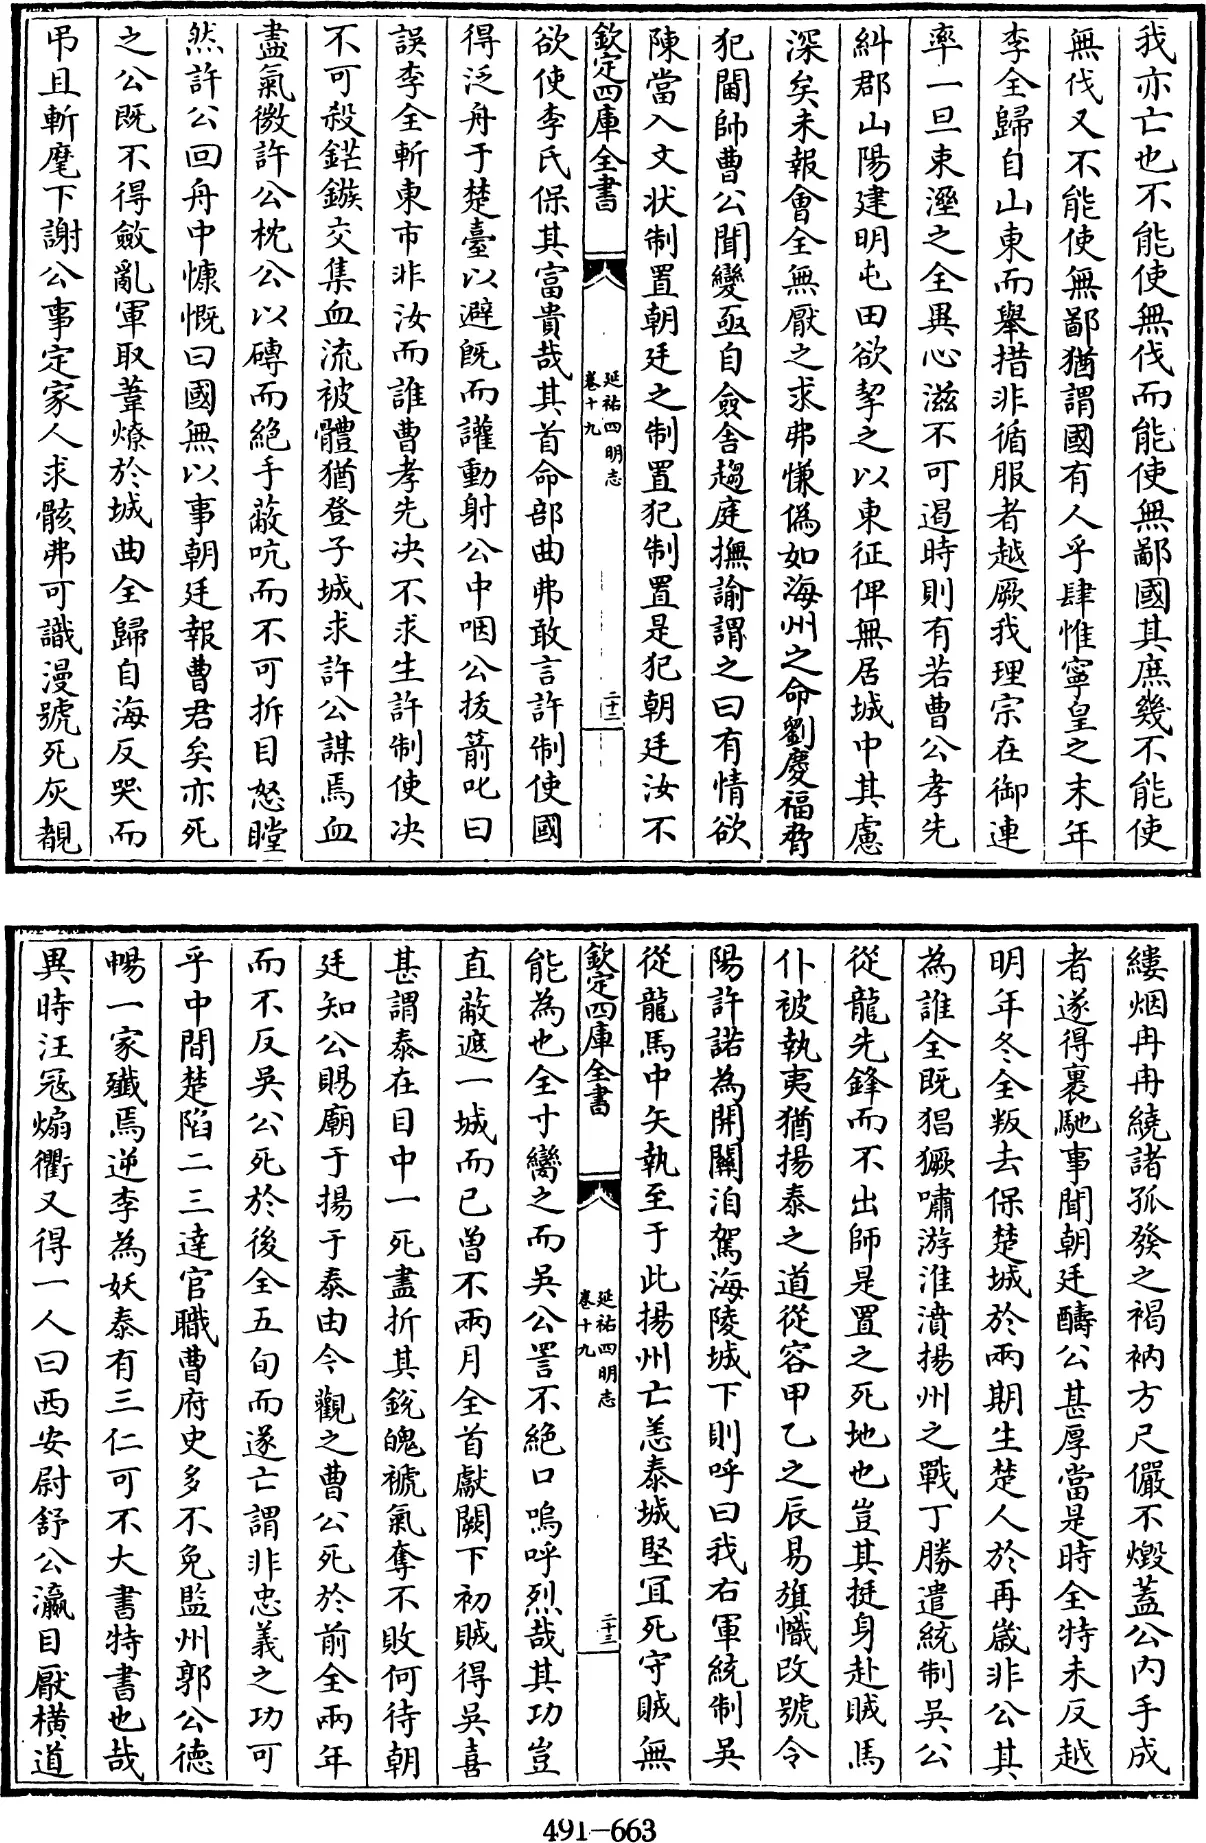 我亦亡也不能使無伐而能使無鄙國其庶幾不能使
無伐又不能使無鄙猶謂國有人乎肆惟寧皇之末年
李全歸自山東而舉措非循服者越厥我理宗在御連
率一旦束溼之全異心滋不可遏時則有若曹公孝先
糾郡山陽建明屯田欲挈之以東征俾無居城中其慮
深矣未報會全無厭之求弗慊偽如海州之命劉慶福脅
犯閫帥曹公聞變亟自僉舍趨庭撫諭謂之曰有情欲
陳當入文狀制置朝廷之制置犯制置是犯朝廷汝不
欽定四庫全書
延祐四明志
卷十九
二十二
欲使李氏保其富貴哉其首命部曲弗敢言許制使國
得泛舟于楚臺以避旣而讙動射公中咽公拔箭叱曰
誤李全斬東市非汝而誰曹孝先决不求生許制使决
不可殺鋩鏃交集血流被體猶登子城求許公謀焉血
盡氣微許公枕公以磚而絶手蔽吭而不可拆目怒瞠
然許公回舟中慷慨曰國無以事朝廷報曹君矣亦死
之公既不得斂亂軍取葦燎於城曲全歸自海反哭而
弔且斬麾下謝公事定家人求骸弗可識漫號死灰覩
縷烟冉冉繞諸孤發之褐衲方尺儼不燬蓋公内手成
者遂得裹馳事聞朝廷醻公甚厚當是時全特未反越
明年冬全叛去保楚城於兩期生楚人於再歲非公其
為誰全既猖獗嘯游淮濆揚州之戰丁勝遣統制吳公
從龍先鋒而不出師是置之死地也豈其挺身赴賊馬
仆被執夷猶揚泰之道從容甲乙之辰易旗幟改號令
陽許諾為開關洎駕海陵城下則呼曰我右軍統制吳
從龍馬中矢執至于此揚州亡恙泰城堅宜死守賊無
欽定四庫全書
延祐四明志
卷十九
二十三
能為也全寸臠之而吳公詈不絶口嗚呼烈哉其功豈
直蔽遮一城而已曾不兩月全首獻闕下初賊得吳喜
甚謂泰在目中一死盡折其銳魄褫氣奪不敗何待朝
廷知公賜廟于揚于泰由今觀之曹公死於前全兩年
而不反吳公死於後全五旬而遂亡謂非忠義之功可
乎中間楚陷二三達官職曹府史多不免監州郭公德
暢一家殲焉逆李為妖泰有三仁可不大書特書也哉
異時汪冦煽衢又得一人曰西安尉舒公瀛目厭橫道
491—663